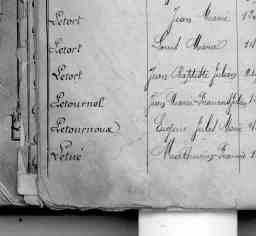 Letort Jean Marie
Letort Louis Marie
Letort Jean Baptiste Julien
Letournel Jean Marie
Letournoux Eugène Jules Marie
Letué Mathurin Francois